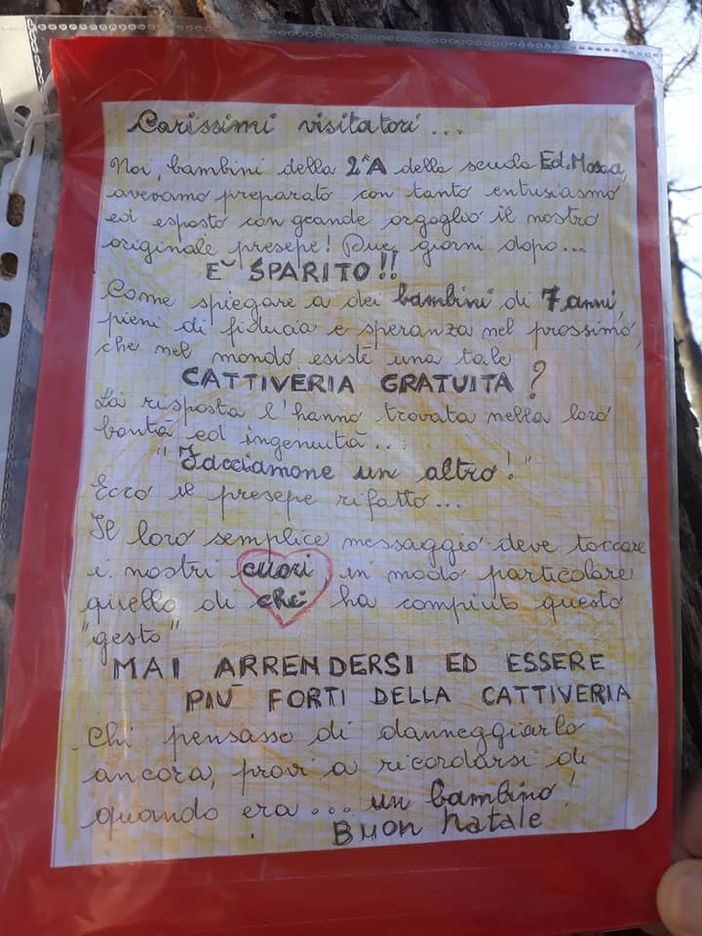 Carissimi visitatori...
Noi, bambini della 2^A della scuola Ed. Mosca,
avevamo preparato con tanto entusiasmo
ed esposto con grande orgoglio il nostro
originale presepe! Due giorni dopo...
E' SPARITO!!
Come spiegare a dei bambini di 7 anni,
pieni di fiducia e speranza nel prossimo,
che nel mondo esiste una tale
CATTIVERIA GRATUITA?
La risposta l'hanno trovata nella loro
bontà ed ingenuità...
"Facciamone un altro!"
Ecco il presepe rifatto...
Il loro semplice messaggio deve toccare
i nostri cuori in modo particolare
quello di chi ha compiuto questo
"gesto"
MAI ARRENDERSI ED ESSERE
PIÙ FORTI DELLA CATTIVERIA
Chi pensasse di danneggiarlo
ancora, provi a ricordarsi di
quando era... un bambino!
Buon Natale